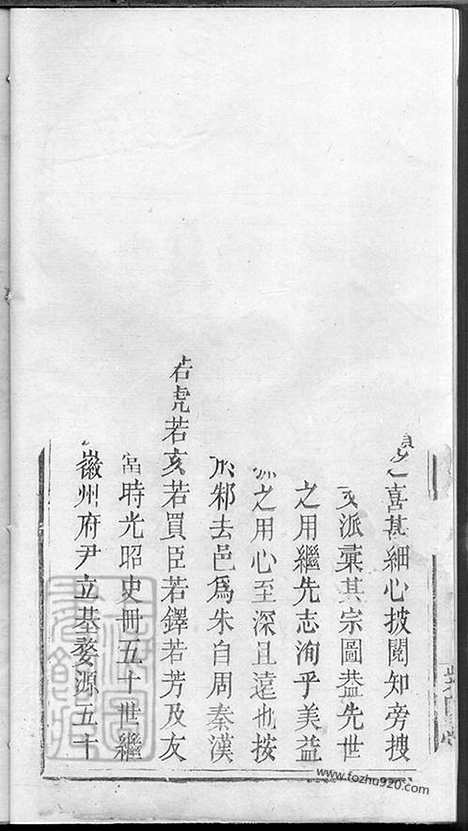 之喜甚細心披閱知旁搜
派彙其宗圖葢先世
之用繼先志洵乎美益
之用心至深且遠也按
邾去邑爲朱自周秦漢
若虎若亥若買臣若鐸若芳及友
當時光昭史冊五十世繼
徽州府尹立基婺源五十
www.fozhu920.com